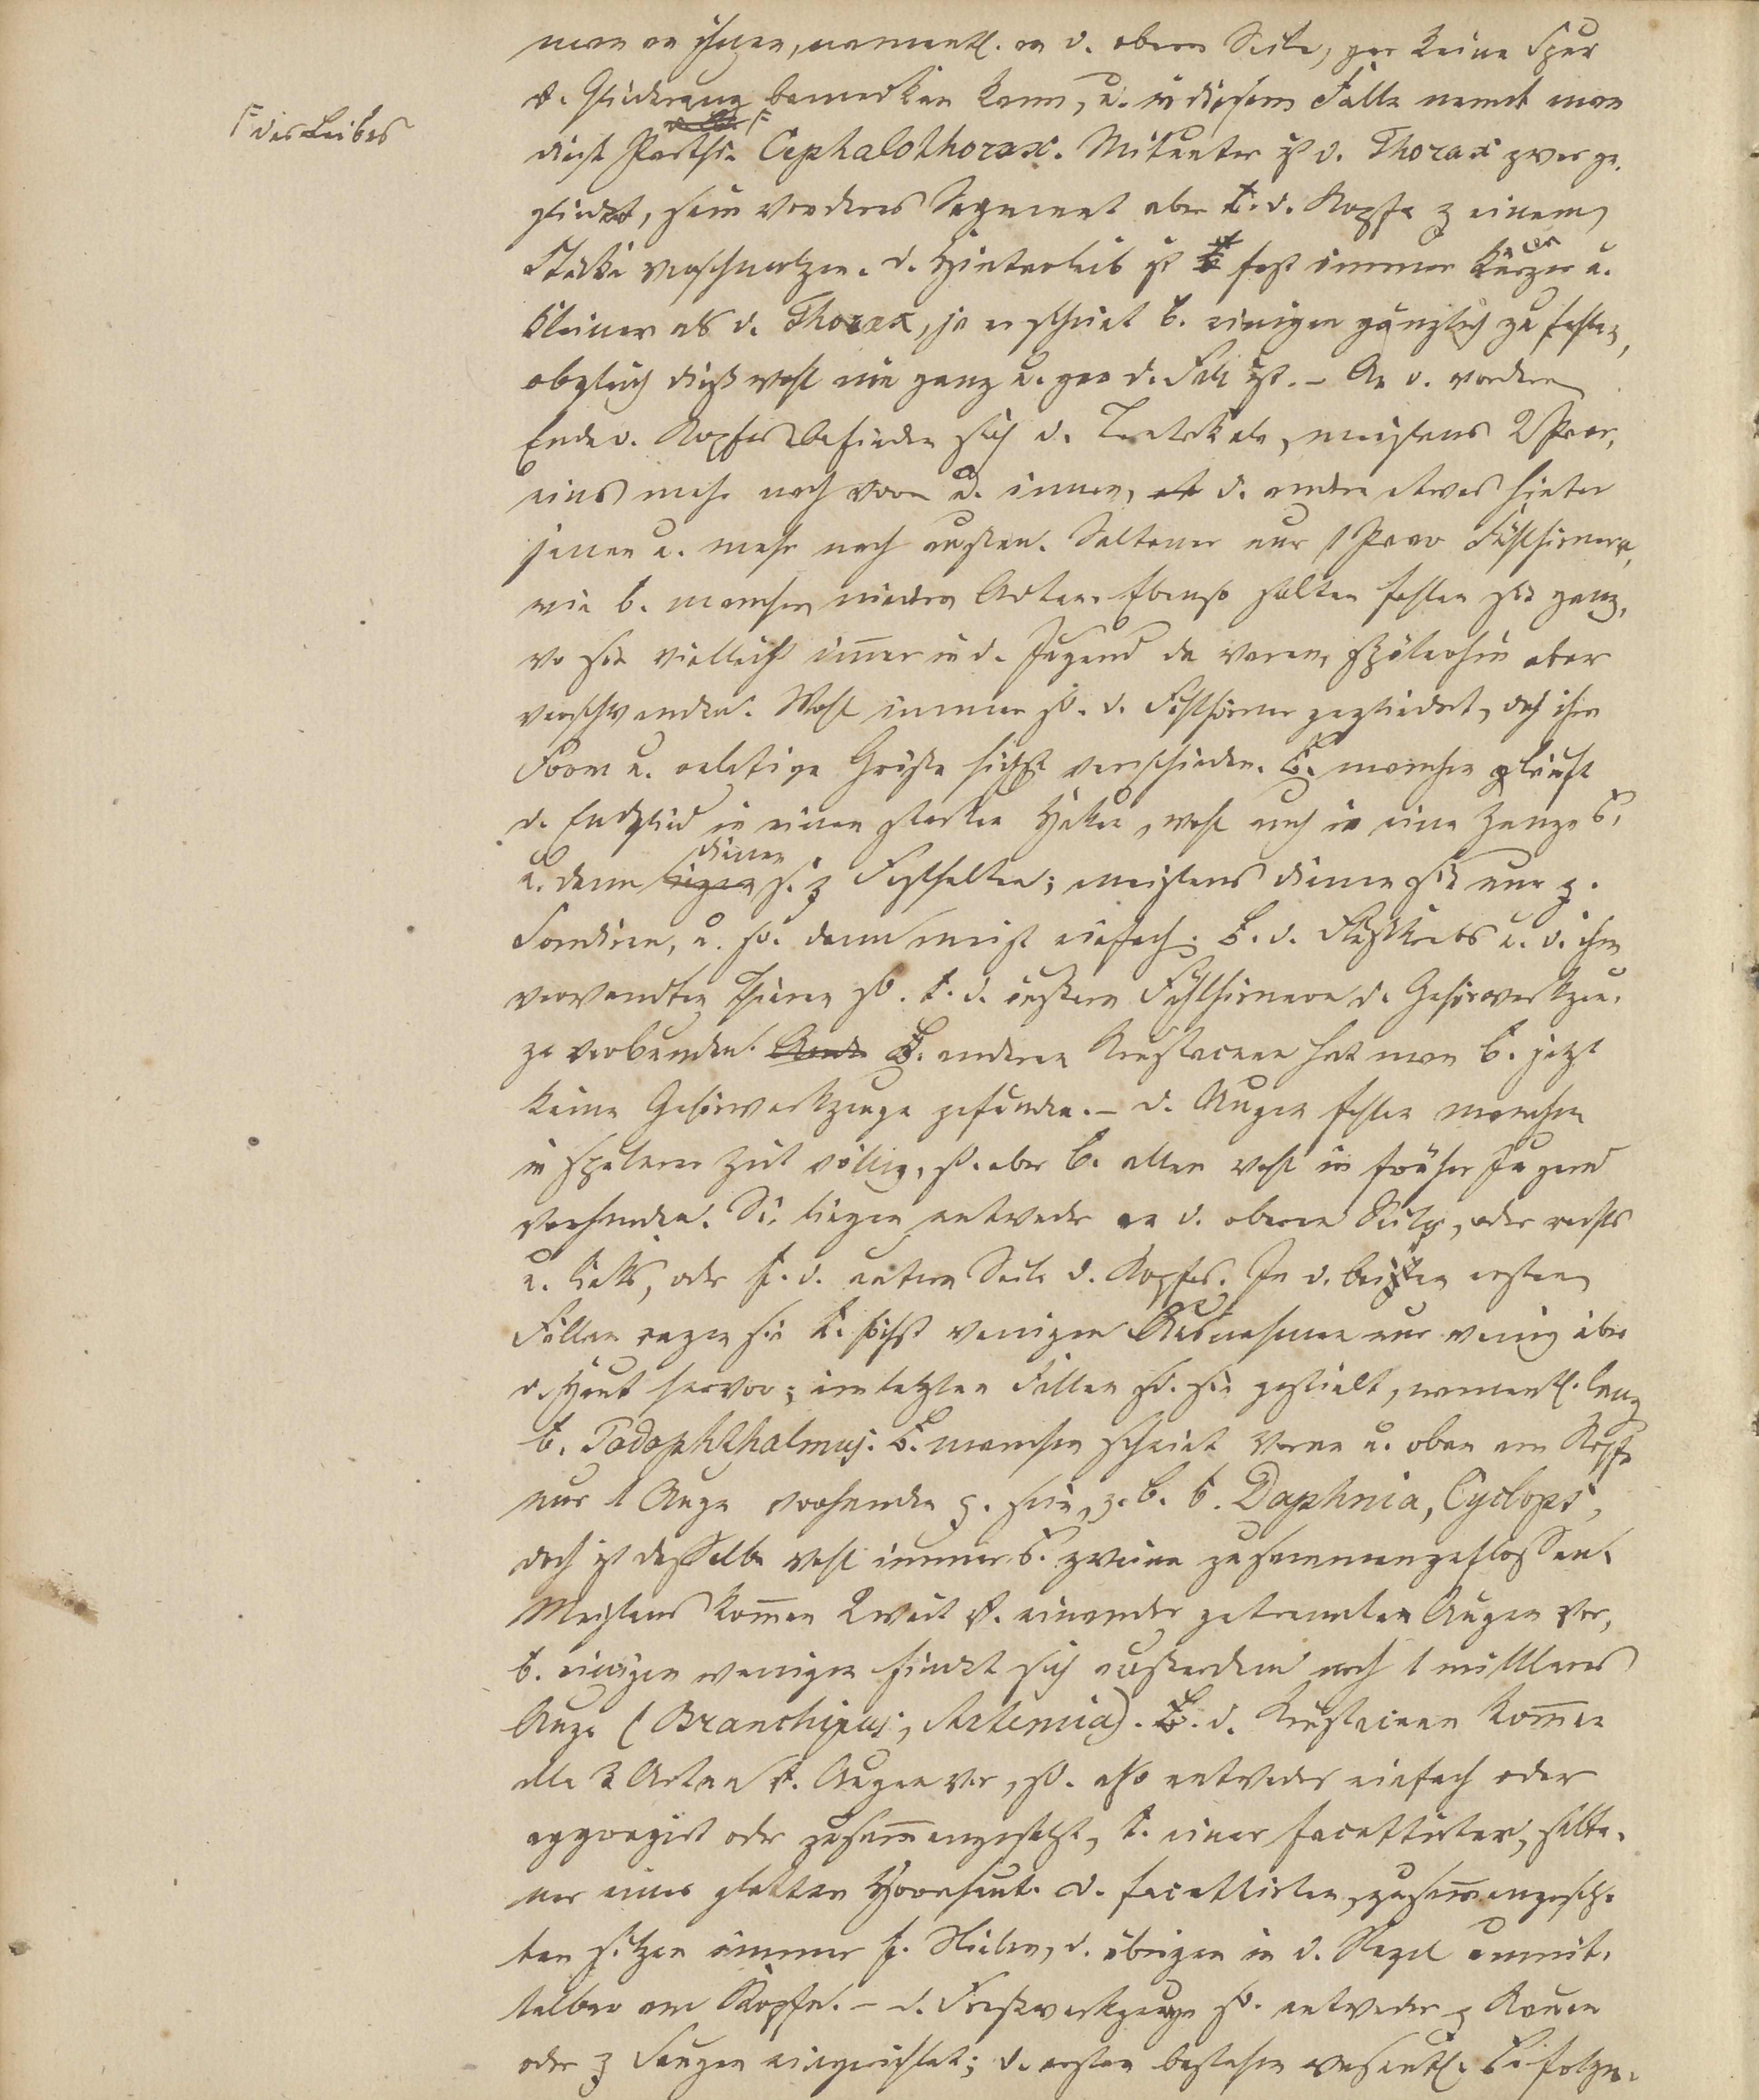 man an ihnen, namentl. an d. obern Seite, gar keine Spur
d. Gliederung bemerken kann, u. in diesem Falle nennt man
F des Leibes
diese Parthie F Cephalothorax. Mitunter ist d. Thorax zwar ge-
gliedert, sein vorderes Segment aber m. d. Kopfe z einem
Stücke verschmolzen. D. Hinterleib ist fast immer kürzer u.
kleiner als d. Thorax, ja er scheint b. einigen gänzlich zu fehlen,
obgleich dieß wohl nie ganz u. gar d. Fall ist. – An d. vordern
Ende d. Kopfes befinden sich d. Tentakeln, meistens 2 Paar,
eins mehr nach vorn u. innen, d. andre etwas hinter
jenen u. mehr nach außen. Seltener nur 1 Paar Fühlhörner,
wie b. manchen niedern Arten. Ebenso selten fehlen sie ganz,
wo sie vielleicht im̅er in d. Jugend da waren, späterhin aber
verschwanden. Wohl immer sd. d. Fühlhörner gegliedert, doch ihre
Form u. relative Größe höchst verschieden. B. manchen läuft
d. Endglied in einen starken Haken, wohl auch in eine Zange
u. dann dienen s. z Festhalten; meistens dienen sie nur z.
Sondiren, u. sd. dann meist einfach. B. d. Flußkrebs u. d. ihm
verwandten Thieren sd. m. d. äußern Fühlhörnern d. Gehörwerkzeu-
ge verbunden. B. anderen Krustaceen hat man b. jetzt
keine Gehörwerkzeuge gefunden. – D. Augen fehlen manchen
in späterer Zeit völlig, sd. aber b. allen wohl in früher Jugend
vorhanden. Sie liegen entweder an d. oberen Seite, oder rechts
u. links, oder f. d. untern Seite d. Kopfes. In d. beiden ersten
Fällen ragen sie m. höchst wenigen Ausnahmen nur wenig über
d. Haut hervor; im letzten Fallen sd. sie gestielt, namentl. lang
b. Podophthalmus. B. manchen scheint vorne u. oben am Kopfe
nur 1 Auge vorhanden z. sein, z. B. b. Daphnia, Cyclops,
doch ist dasselbe wohl immer zweien zusammengeflossen.
Meistens kom̅en 2 weit v. einander getrennten Augen vor,
b. einigen wenigen findet sich außerdem noch 1 mittleres
Auge (Branchipus, Artemia). B. d. Krustaceen kom̅en
alle 3 Arten v. Augen vor, sd. also entweder einfach oder
aggregirt oder zusam̅engesetzt, m. einer facettirten, selte-
ner einer glatten Hornhaut. D. facettirten, zusam̅engesetz-
ten sitzen immer f. Stielen, d. übrigen in d. Regel unmit-
telbar am Kopfe. – D. Freßwerkzeuge sd. entweder z Kauen
oder z Saugen eingerichtet; d. ersten bestehen wesentl. folgen-